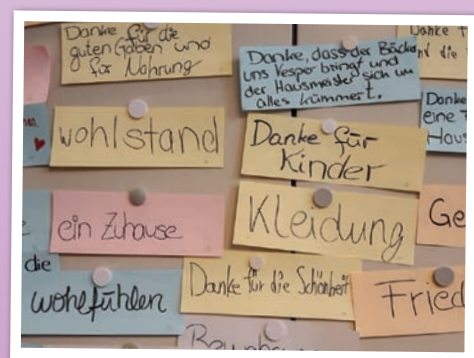 Danke für die
guten Gaben und
für Nahrung
Danke, dass der Bäcker
uns Vesper bringt und
der Hausmeister sich um
alles kümmert.
Danke f
und die
wohlstand
Danke für
Kinder
Danke
eine
Haus
ein Zuhause
Kleidung
Ge
die
wohlfühlen
Danke für die Schönheit
Fried